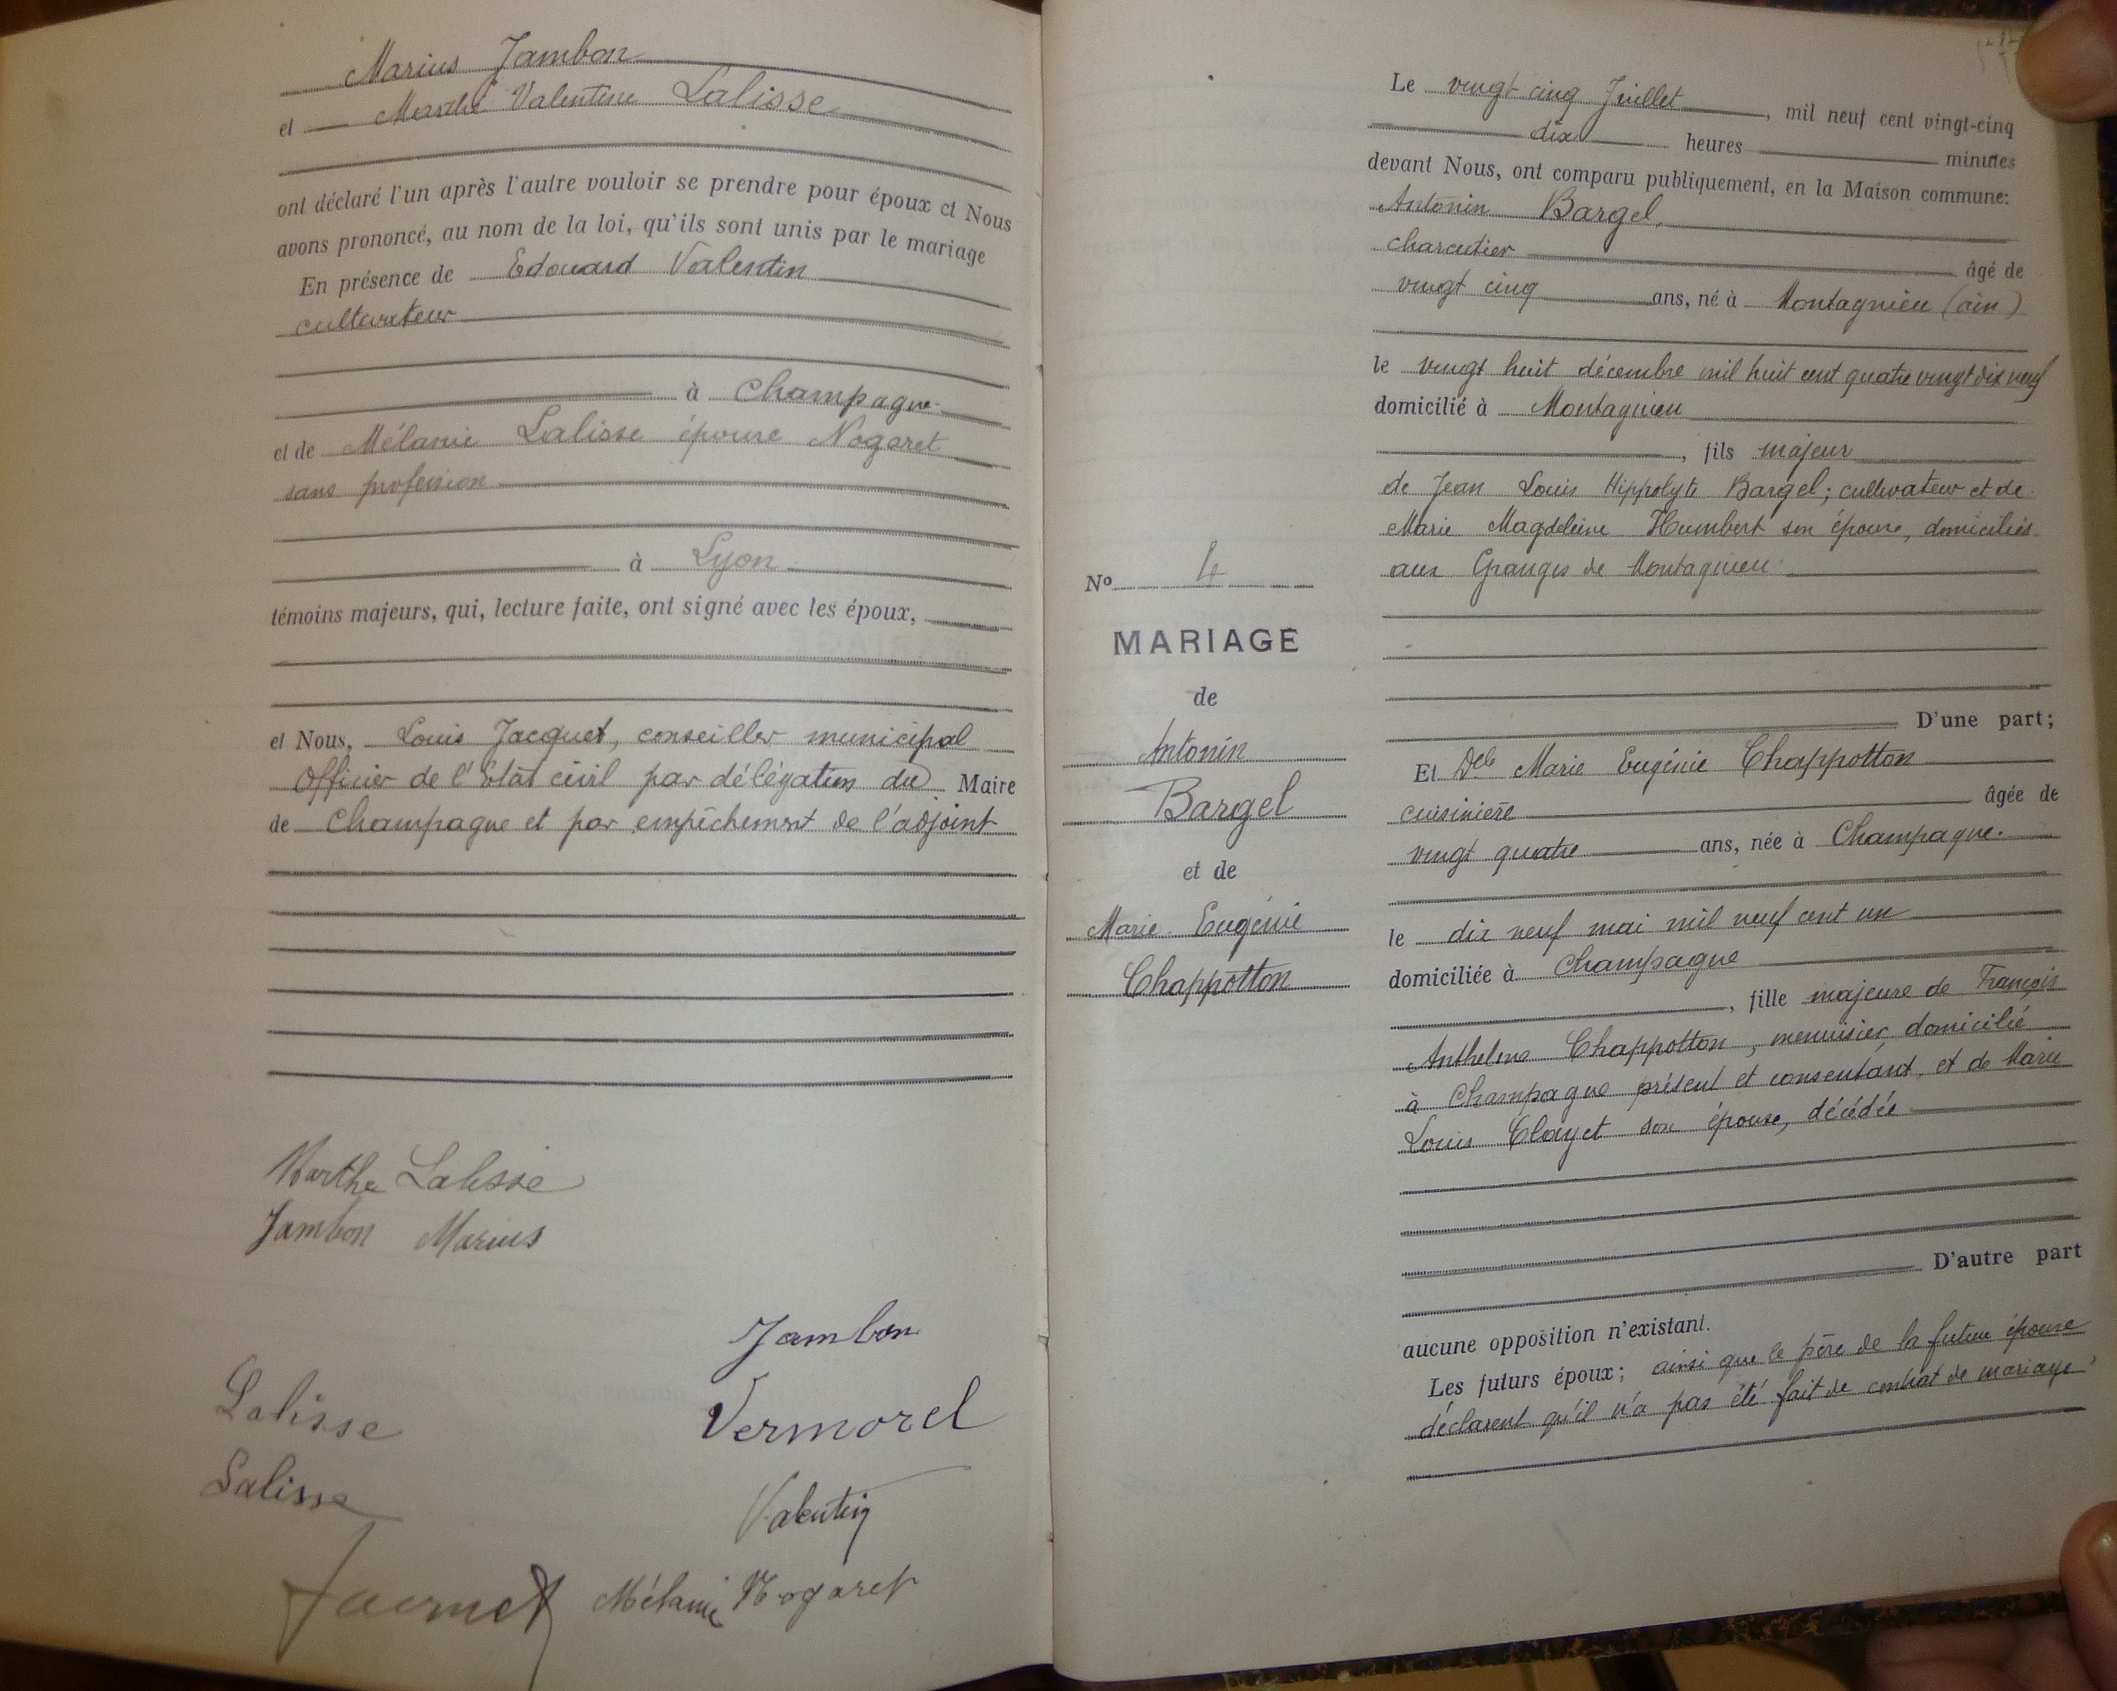 Marius Jambon
et Marthe Valentine Lalisse
ont déclaré l'un après l'autre vouloir se prendre pour époux et Nous
avons prononcé, au nom de la loi, qu'ils sont unis par le mariage
En présence de Edouard Valentin
cultivateur
à Champagne
et de Mélanie Lalisse épouse Nogaret
sans profession
à Lyon
témoins majeurs, qui, lecture faite, ont signé avec les époux,
et Nous, Louis Jacquet, conseiller municipal
Officier de l'Etat civil par délégation du Maire
de Champagne et par empêchement de l'adjoint
Marthe Lalisse
Jambon Marius
Jambon
Lalisse
Vermorel
Lalisse
Valentin
Jacquet Mélanie Nogaret
Nº 4
MARIAGE
de
Antonin
Bargel
et de
Marie Eugénie
Chappotton
Le vingt cinq Juillet, mil neuf cent vingt-cinq
dix heures minutes
devant Nous, ont comparu publiquement, en la Maison commune:
Antonin Bargel,
charcutier âgé de
vingt cinq ans, né à Montagnieu (ain)
le vingt huit décembre mil huit cent quatre vingt dix neuf
domicilié à Montagnieu
, fils majeur
de Jean Louis Hippolyte Bargel; cultivateur et de
Marie Magdeleine Humbert son épouse, domiciliés
aux Granges de Montagnieu
D'une part;
Et Delle Marie Eugénie Chappotton
cuisinière âgée de
vingt quatre ans, née à Champagne.
le dix neuf mai mil neuf cent un
domiciliée à Champagne
, fille majeure de François
Anthelme Chappotton, menuisier domicilié
à Champagne présent et consentant, et de Marie
Louis Clayet son épouse, décédée
D'autre part
aucune opposition n'existant.
Les futurs époux; ainsi que le père de la future épouse
déclarent qu'il n'a pas été fait de contrat de mariage